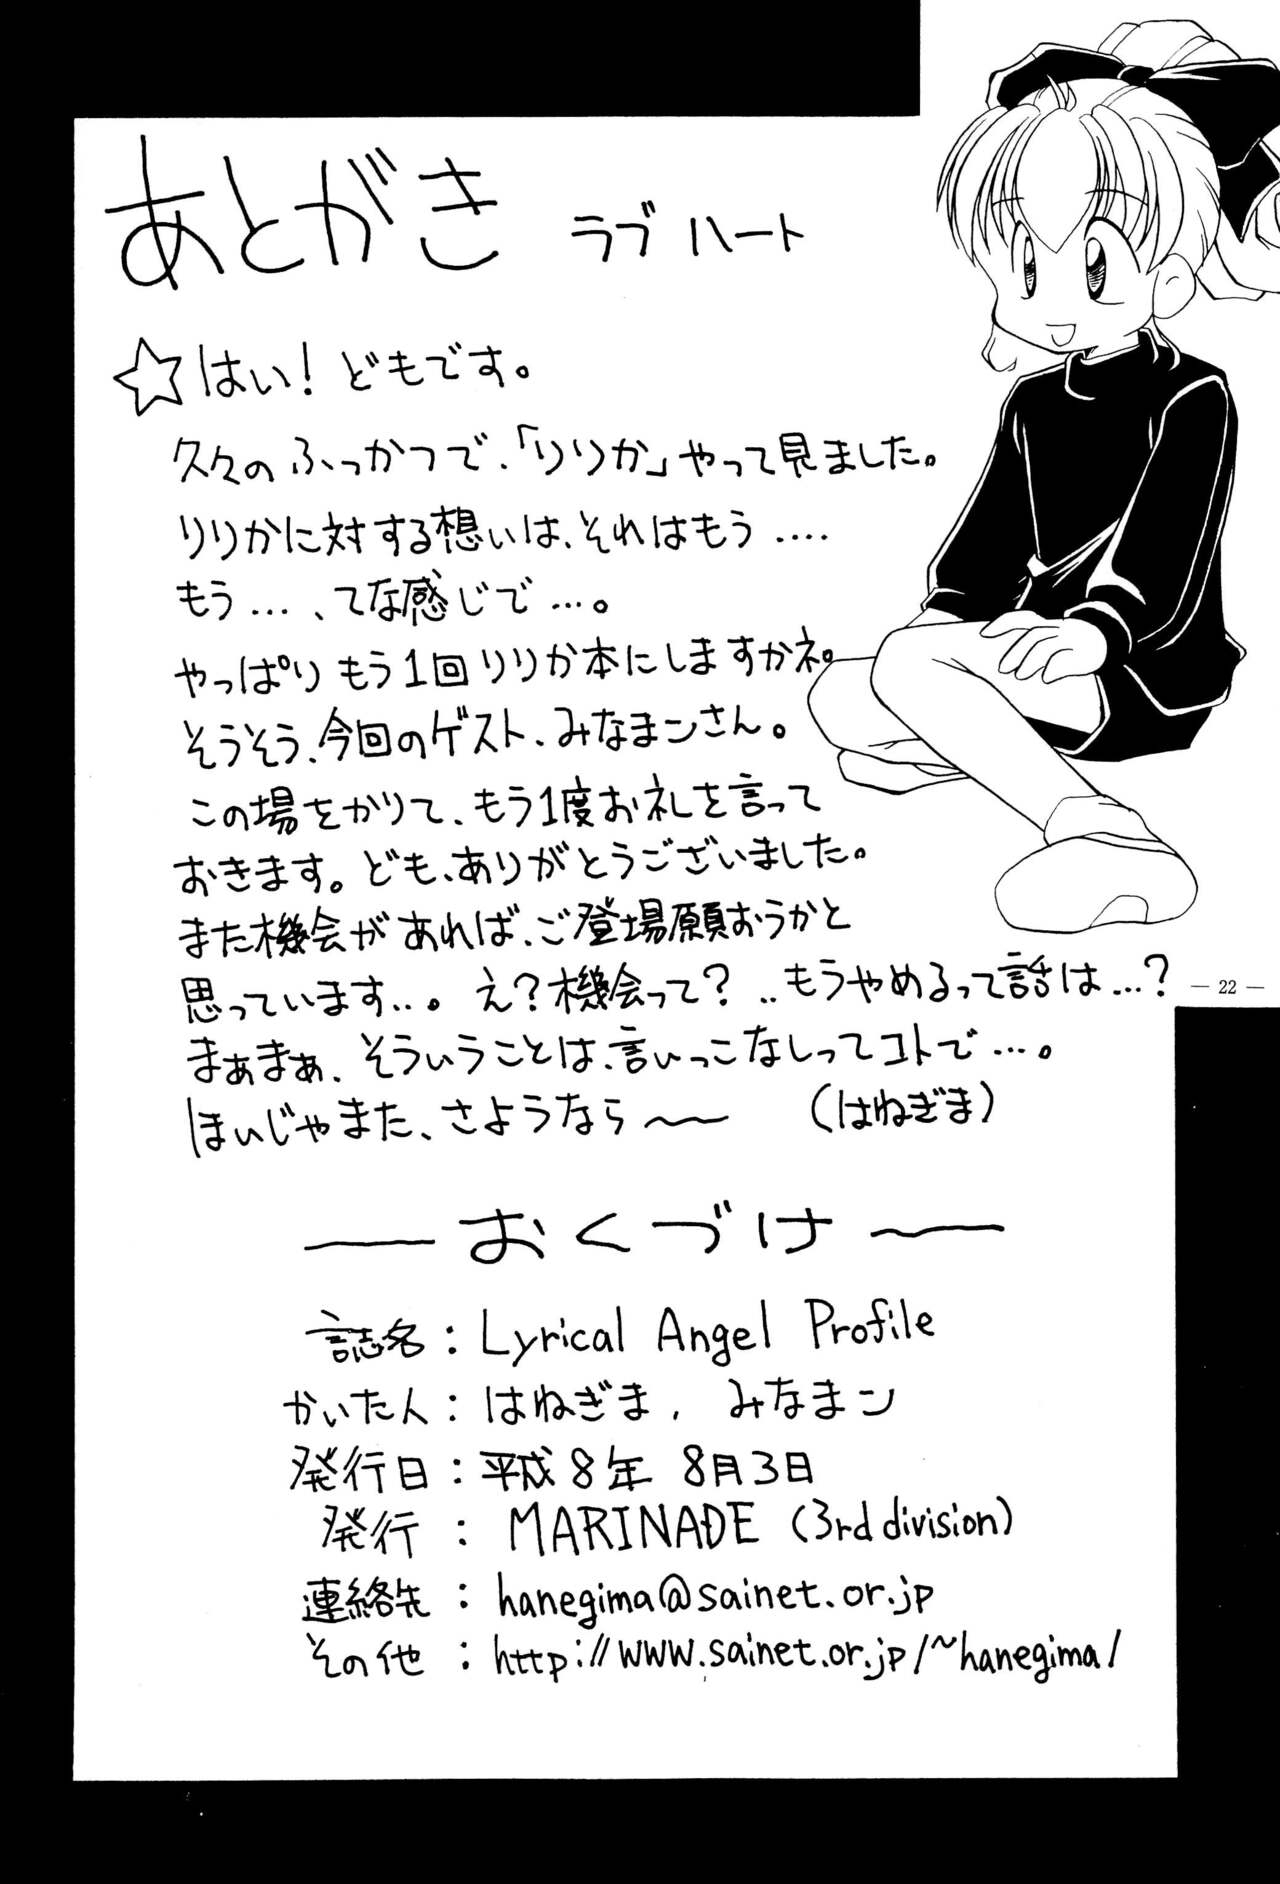 あとがき ラブハート
☆はい！どもです。
久々のふっかつで、「りりか」やって見ました。
りりかに対する想いは、それはもう....
もう...、てな感じで...。
やっぱりもう1回りりか本にしますかネ。
そうそう、今回のゲスト、みなまンさん。
この場をかりて、もう1度お礼を言って
おきます。ども、ありがとうございました。
また機会があれば、ご登場願おうかと
思っています...。え？機会って？..もうやめるって話は...？
まぁまぁ、そういうことは、言いっこなしってコトで...。
ほいじゃまた、さようなら～～ (はねぎま)
— 22 —
～おくづけ～
誌名：Lyrical Angel Profile
かいた人：はねぎま, みなまン
発行日：平成8年 8月3日
発行：MARINADE (3rd division)
連絡先：hanegima@sainet.or.jp
その他：http://www.sainet.or.jp/~hanegima/